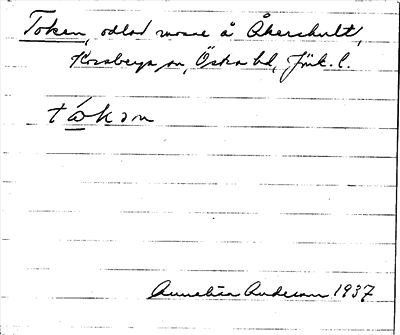 Token, odlad mosse å Åkershult,
Korsberga sn, Östra hd, Jönk. l.
tωkən
Annelisa Anderson 1937